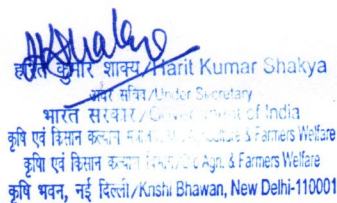 हरित कुमार शाक्य/Harit Kumar Shakya
अवर सचिव/Under Secretary
भारत सरकार/Government of India
कृषि एवं किसान कल्याण Agriculture & Farmers Welfare
कृषि एवं किसान कल्याण Agn. & Farmers Welfare
कृषि भवन, नई दिल्ली/Krishi Bhawan, New Delhi-110001